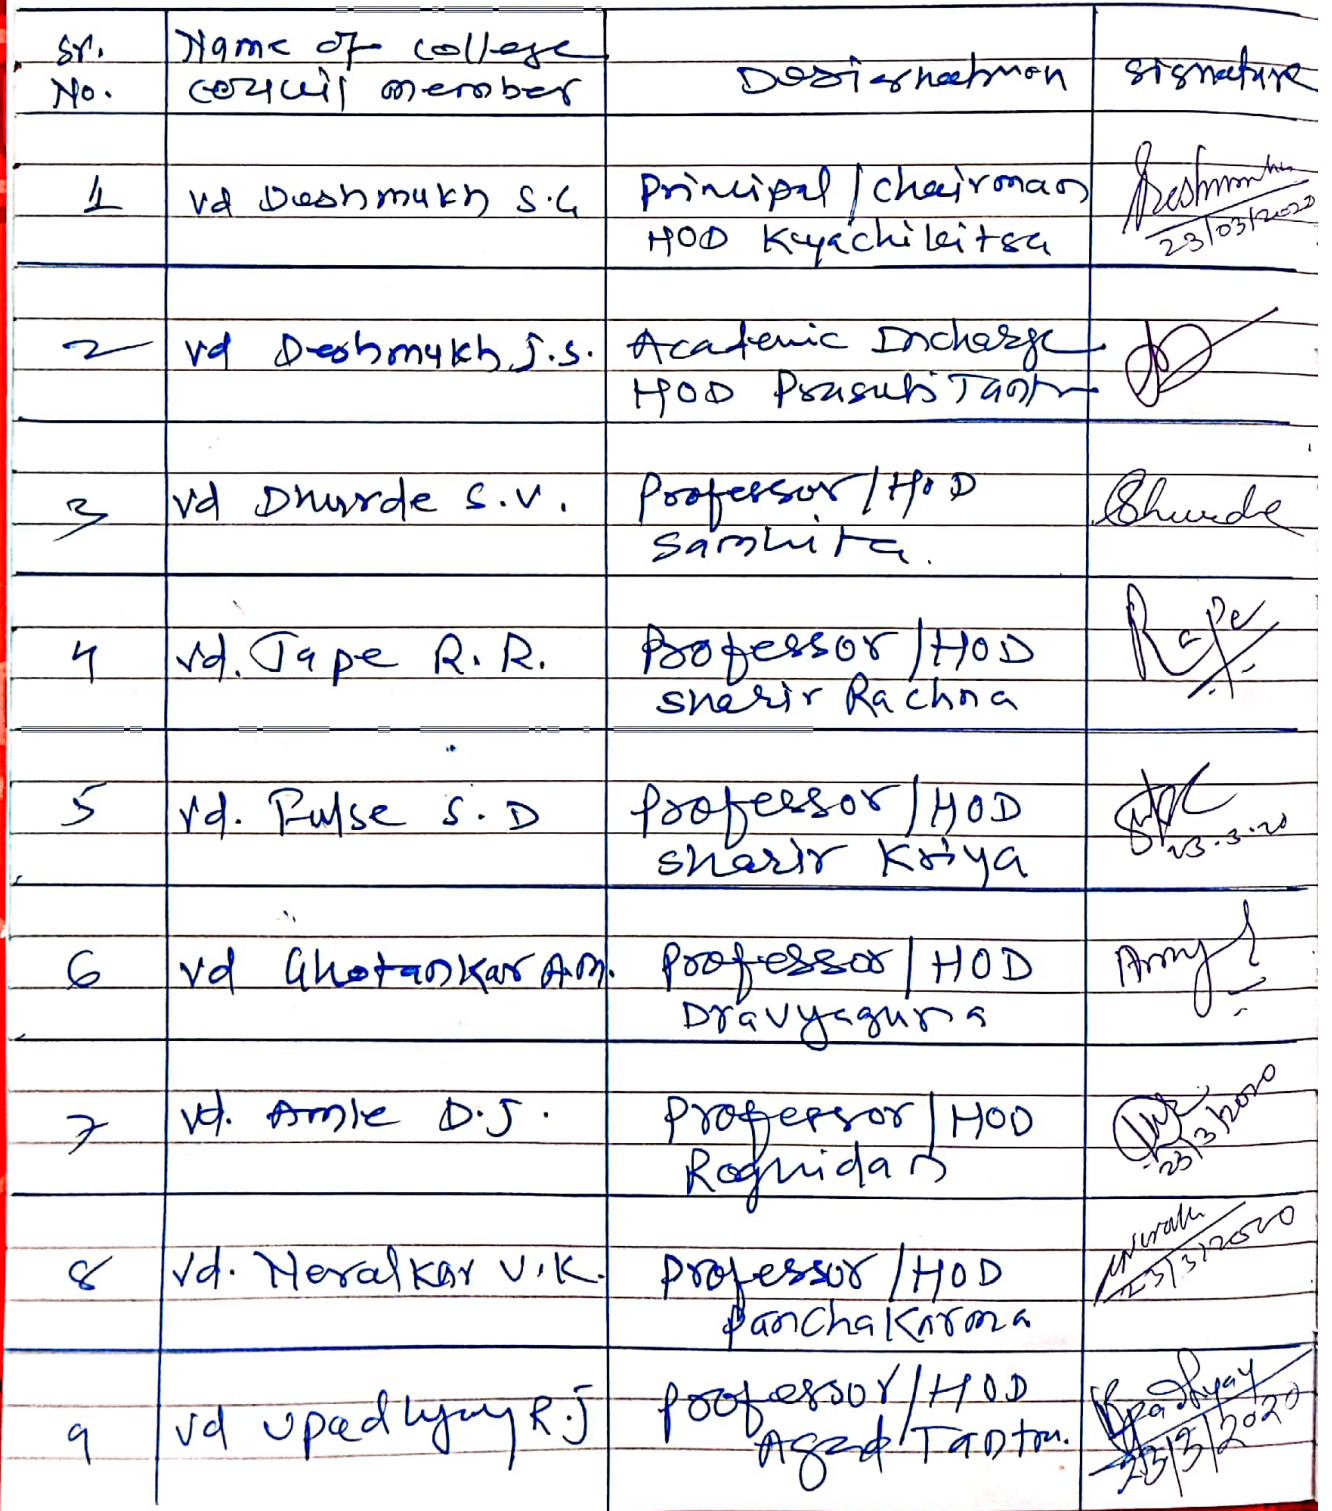 Sr. Name of college
No. council member Designation Signature
1 Vd Deshmukh S.G Principal / Chairman Deshmukh
HOD Kayachikitsa 23/03/2020
2 Vd Deshmukh J.S. Academic Incharge
HOD Prasuti Tantra
3 Vd Dhurde S.V. Professor / H.O.D Dhurde
Samhita.
4 Vd. Tape R. R. Professor / HOD
Sharir Rachna
5 Vd. Fulse S. D Professor / HOD
Sharir Kriya 23.3.20
6 Vd Ghotankar A.M. Professor / HOD
Dravyaguna
7 Vd. Amle D.J. Professor / HOD
Rognidan 23/3/2020
8 Vd. Neralkar V.K. Professor / HOD
Panchakarma 23/3/2020
9 Vd Upadhyay R.J Professor / HOD Upadhyay
Agad Tantra. 23/3/2020